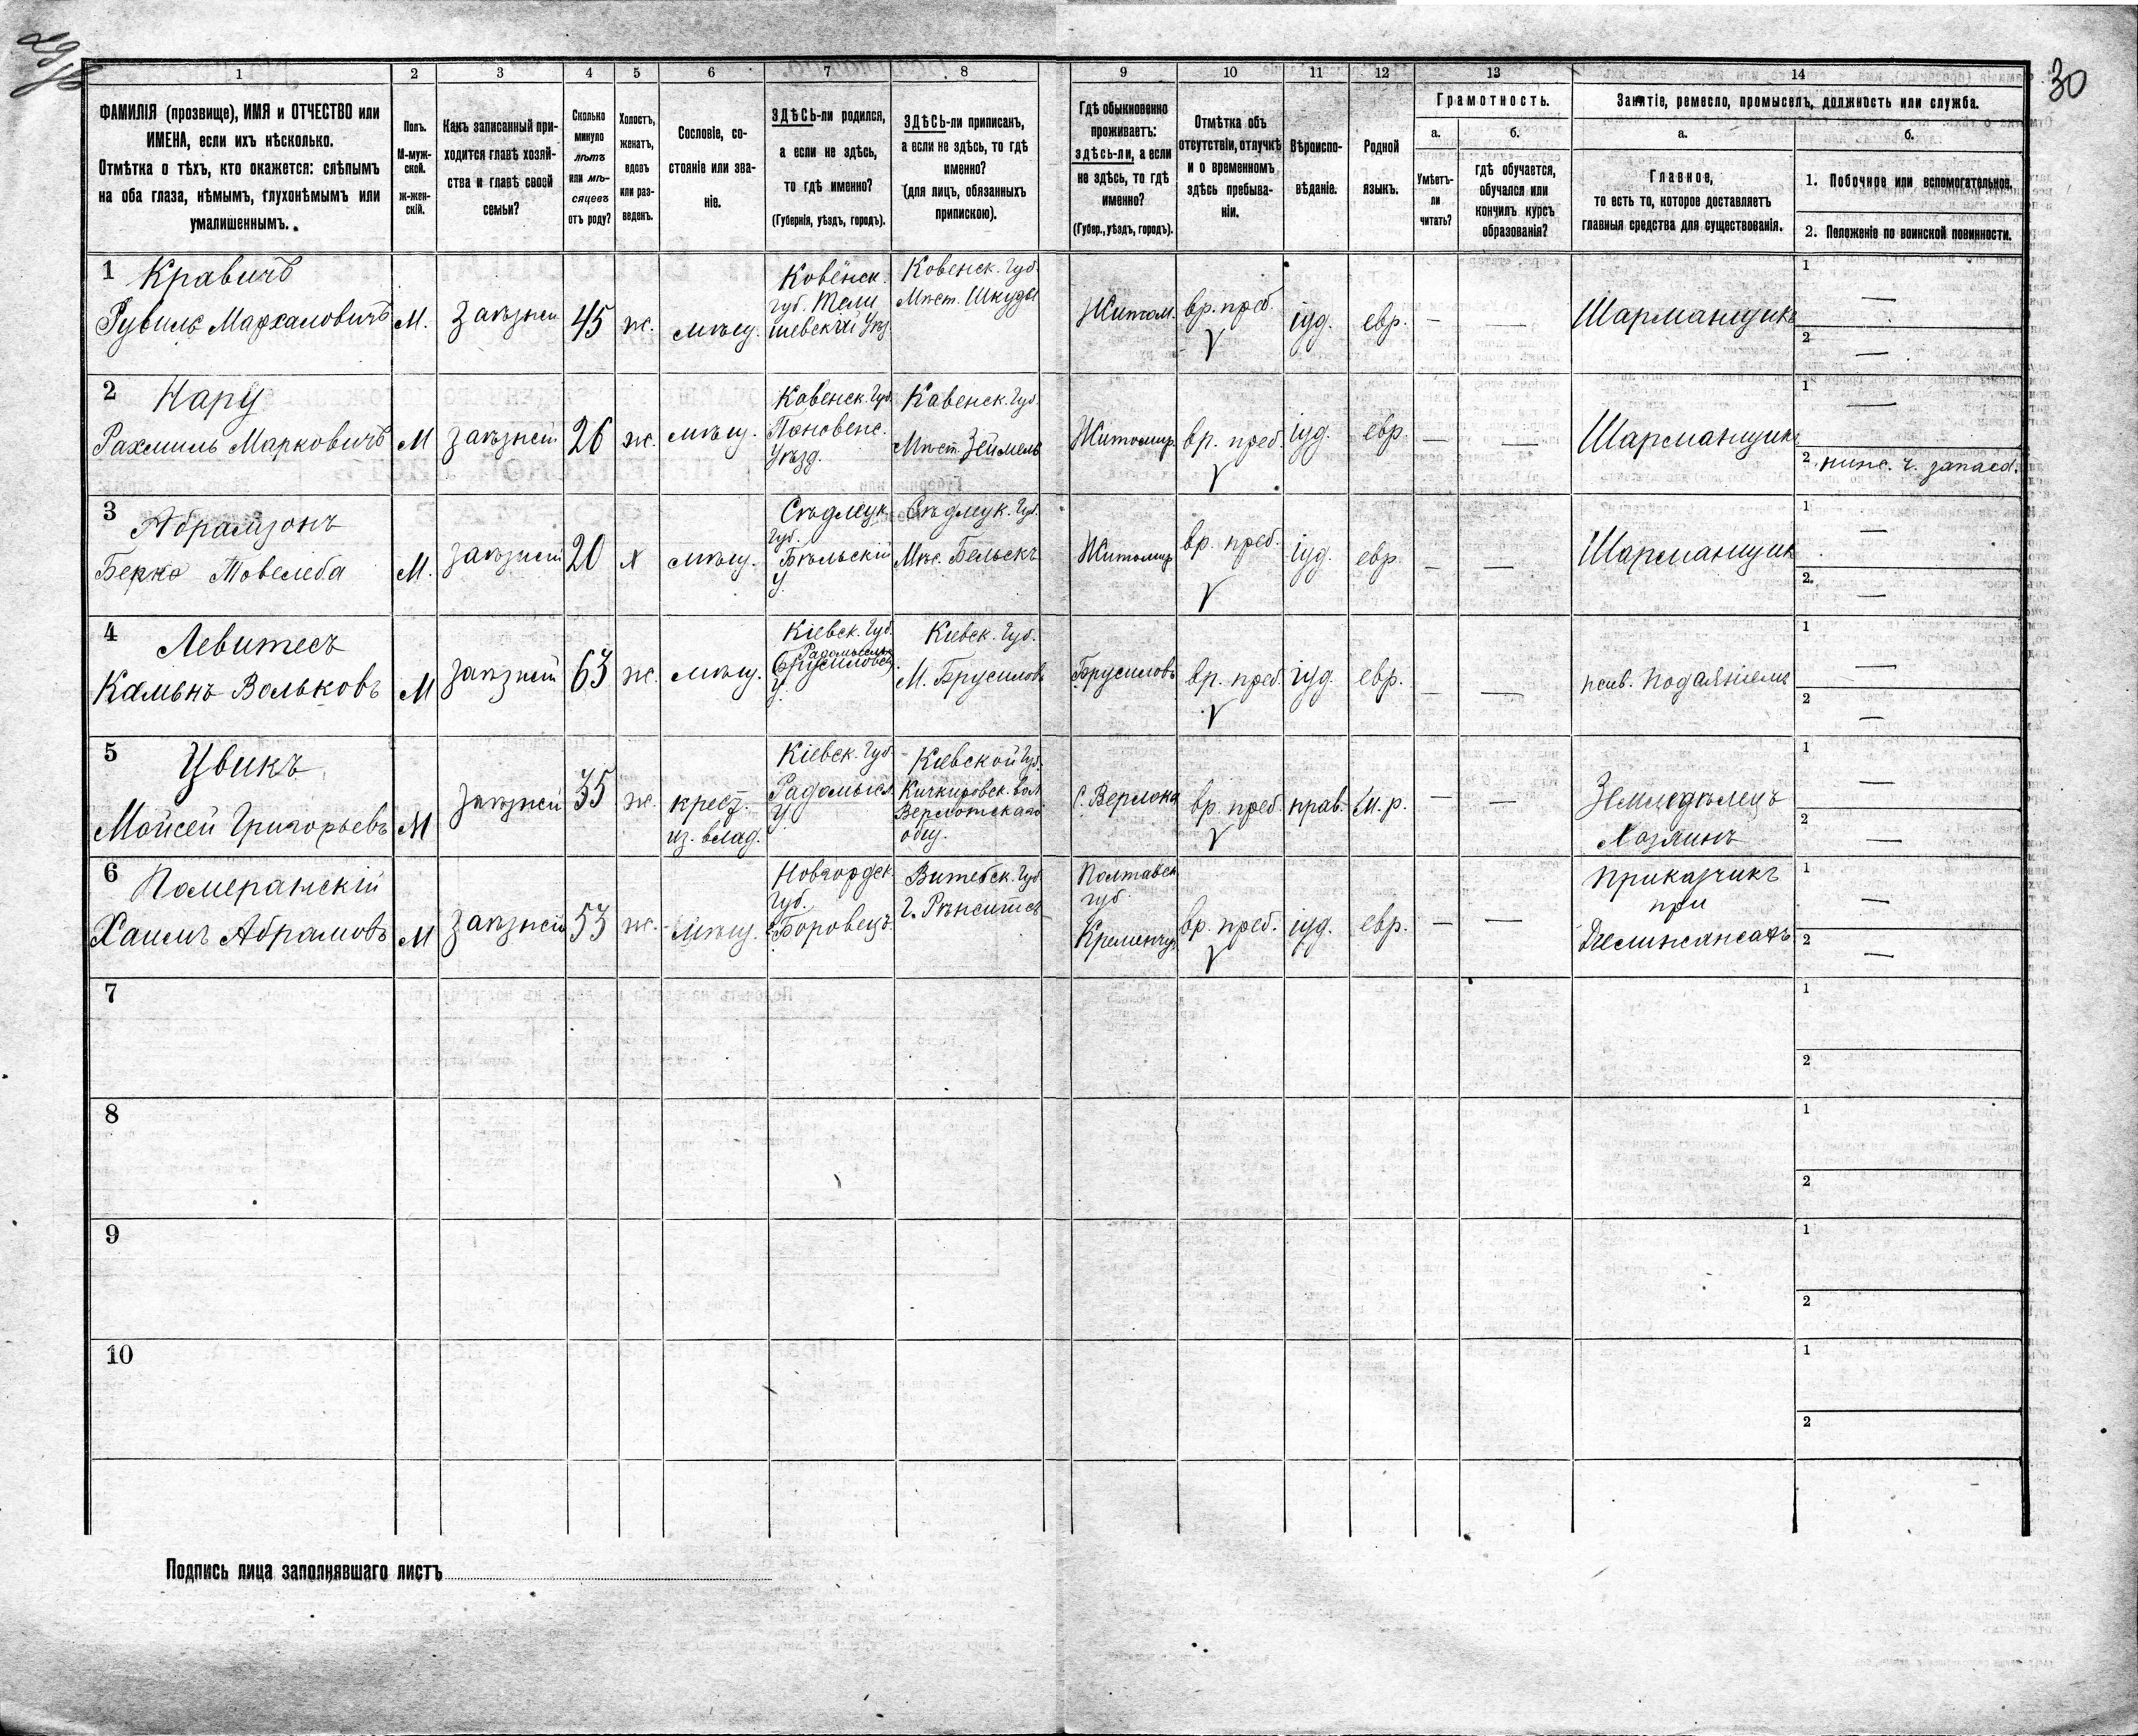 30
1
2
3
4
5
6
7
8
9
10
11
12
13
14
ФАМИЛІЯ (прозвище), ИМЯ и ОТЧЕСТВО или
ИМЕНА, если ихъ нѣсколько.
Отмѣтка о тѣхъ, кто окажется: слѣпымъ
на оба глаза, нѣмымъ, глухонѣмымъ или
умалишеннымъ.
Полъ.
М-муж-
ской.
ж-жен-
скій.
Какъ записанный при-
ходится главѣ хозяй-
ства и главѣ своей
семьи?
Сколько
минуло
лѣтъ
или мѣ-
сяцевъ
отъ роду?
Холостъ,
женатъ,
вдовъ
или раз-
веденъ.
Сословіе, со-
стояніе или зва-
ніе.
ЗДѢСЬ-ли родился,
а если не здѣсь,
то гдѣ именно?
(Губернія, уѣздъ, городъ).
ЗДѢСЬ-ли приписанъ,
а если не здѣсь, то гдѣ
именно?
(для лицъ, обязанныхъ
припискою).
Гдѣ обыкновенно
проживаетъ:
здѣсь-ли, а если
не здѣсь, то гдѣ
именно?
(Губер., уѣздъ, городъ).
Отмѣтка объ
отсутствіи, отлучкѣ
и о временномъ
здѣсь пребыва-
ніи.
Вѣроиспо-
вѣданіе.
Родной
языкъ.
Грамотность.
а.
Умѣетъ-
ли
читать?
б.
гдѣ обучается,
обучался или
кончилъ курсъ
образованія?
Занятіе, ремесло, промыселъ, должность или служба.
а.
Главное,
то есть то, которое доставляетъ
главныя средства для существованія.
б.
1. Побочное или вспомогательное.
2. Положеніе по воинской повинности.
1
Кравичъ
М.
заѣзжій
45
ж.
мѣщ.
Ковенск.
губ. Тель
шевскій Уѣз
Ковенск. Губ.
Мѣст. Шкуды
Житом.
вр. преб.
іуд.
евр.
—
—
Шарманщикъ
1
—
2
—
2
Рахмиль Марковичъ
М
заѣзжій
26
ж.
мѣщ.
Ковенск. Губ.
Уѣзд.
Ковенск. Губ.
Мѣст. Зеймель
Житомир
вр. преб.
іуд.
евр.
—
—
Шарманщикъ
1
—
2
3
Абрамзонъ
Берко
М.
заѣзжій
20
х
мѣщ.
Сѣдлецк
Губ.
Бѣльскій
У
Сѣдлецк. Губ.
Мѣс. Бельскъ
Житомир
вр. преб.
іуд.
евр.
—
—
Шарманщик
1
—
2
—
4
Левитесъ
Кальмнъ Вольковъ
М
заѣзжій
63
ж.
мѣщ.
Кіевск. Губ.
Радомысль
У.
Кіевск. Губ.
М. Брусиловъ
Брусиловъ
вр. преб.
іуд.
евр.
—
—
1
—
2
—
5
Цвикъ
Мойсей Григорьевъ
М
заѣзжій
35
ж.
крест.
из. влад.
Кіевск. Губ.
Радомысл
У
Кіевской Губ.
Кичкировск. вол
общ.
с. Верлока
вр. преб.
прав.
М. р.
—
—
Земледѣлецъ
Хозяинъ
1
—
2
—
6
Померанскій
Хаимъ Абрамовъ
М
заѣзжій
53
ж.
мѣщ.
Новгородск.
Губ.
Боровецъ.
Витебск. Губ
Г. Рѣжитсѣ
Полтавск
губ.
Кременчуг
вр. преб.
іуд.
евр.
—
—
Приказчикъ
при
Дилижансахъ
1
—
2
—
7
1
2
8
1
2
9
1
2
10
1
2
Подпись лица заполнявшаго листъ